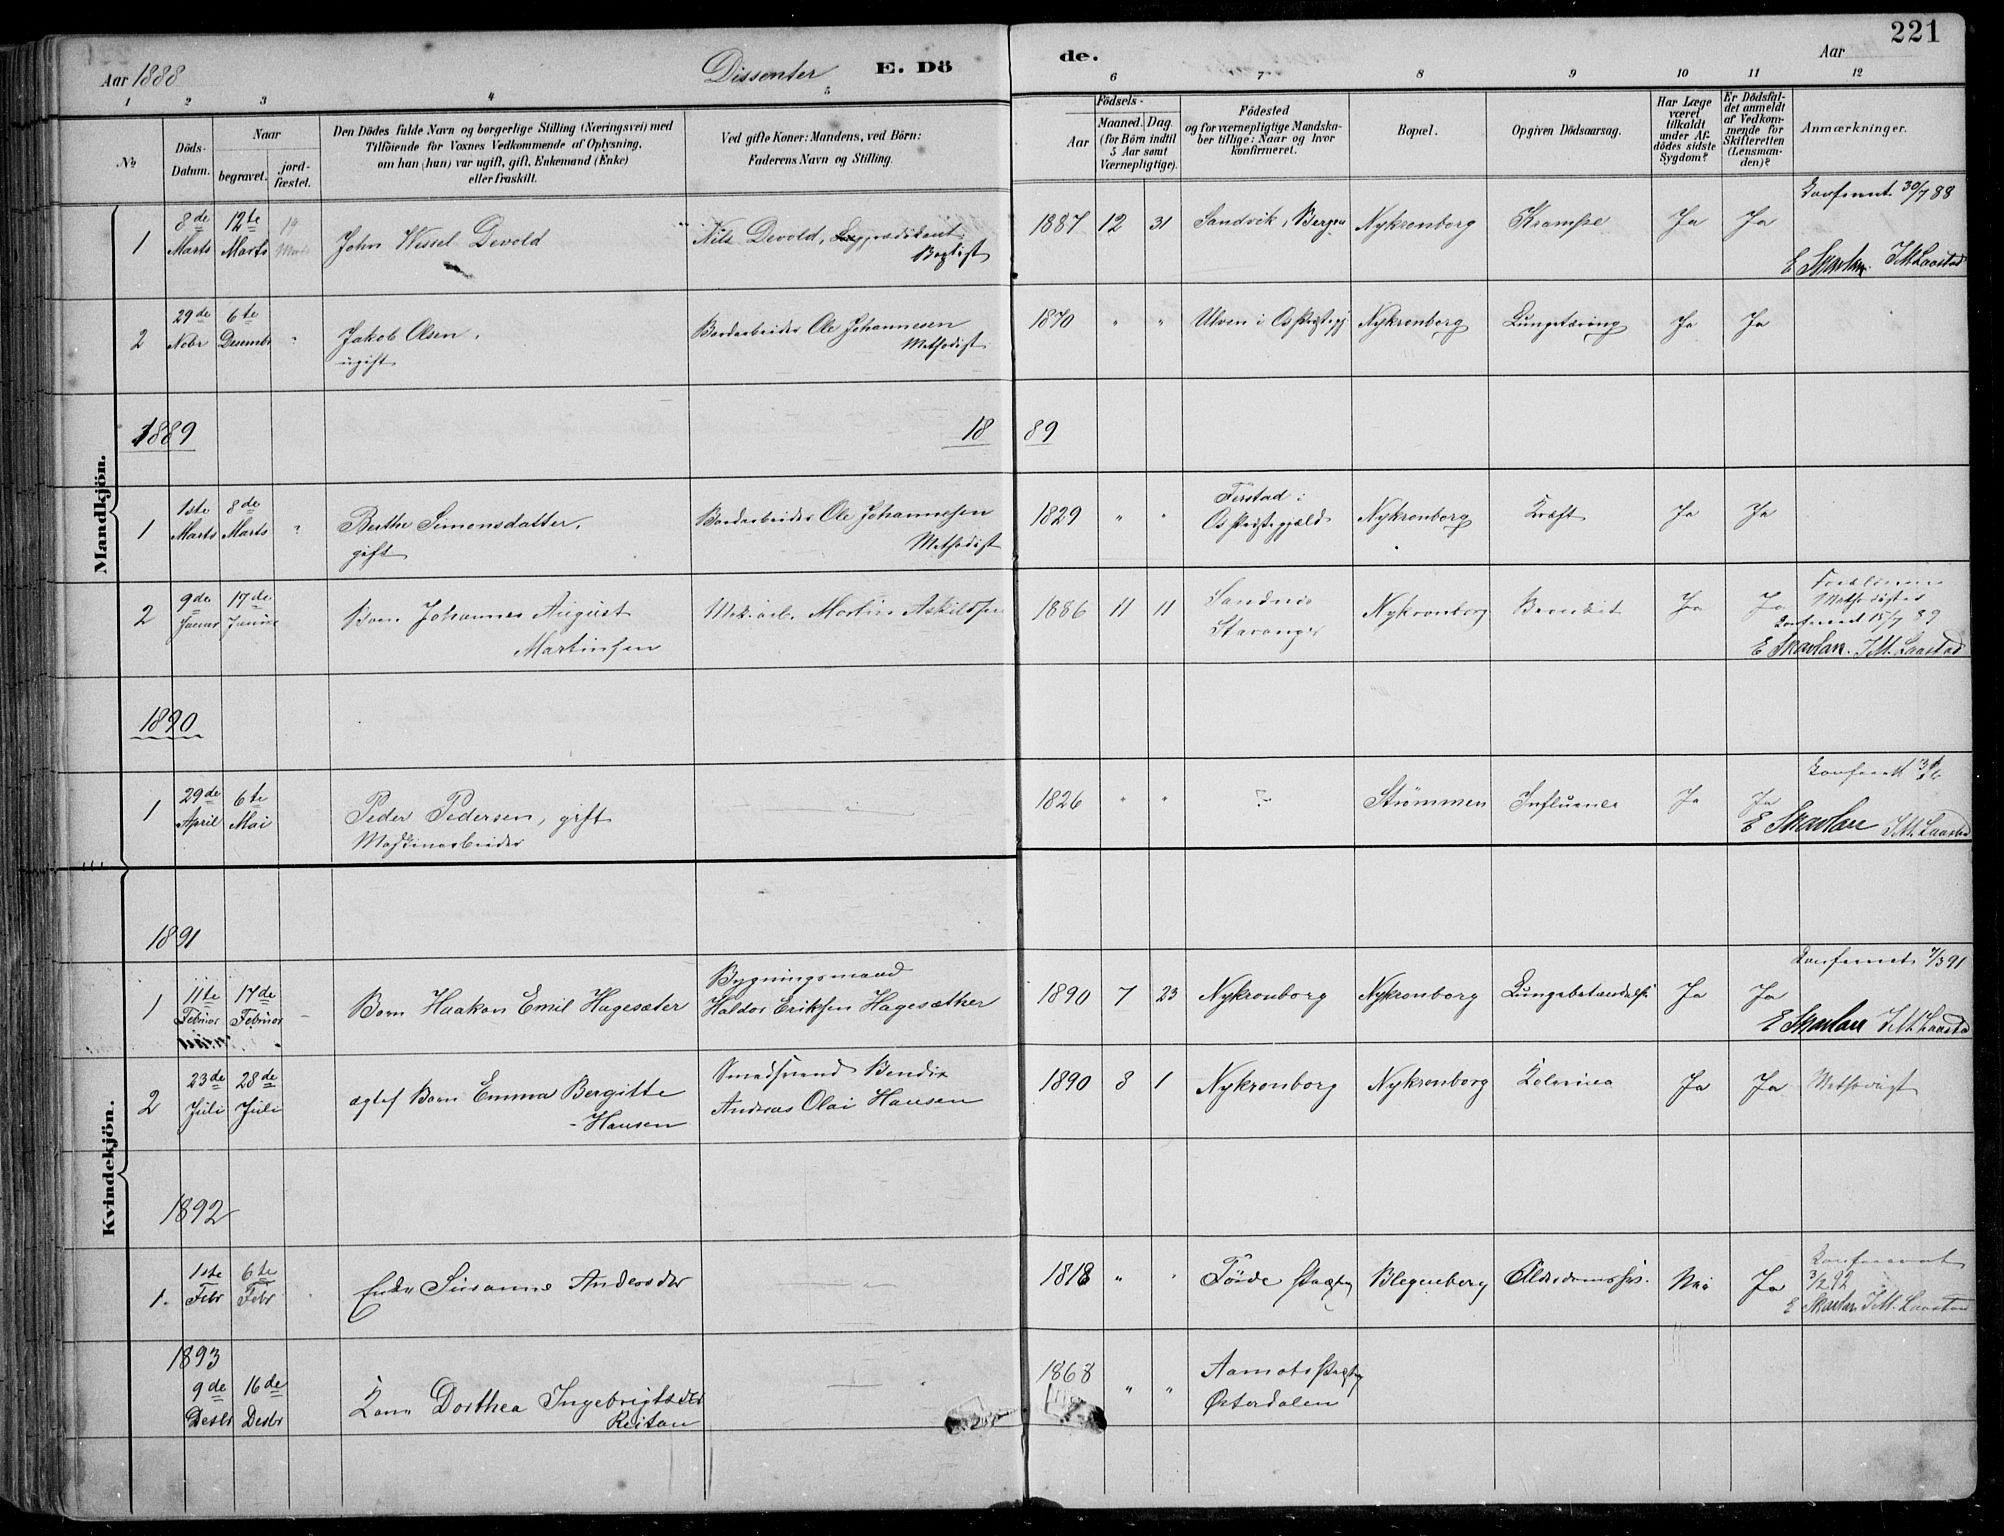 221
Aar 1888 Dissenter E. Dö de. Aar
1 2 3 4 5 6 7 8 9 10 11 12
No.
Döds-Datum.
Naar
begravet.
jord-fæstet.
Den Dödes fulde Navn og borgerlige Stilling (Næringsvei) med
Tilföiende for Voxnes Vedkommende af Oplysning,
om han (hun) var ugift, gift, Enkemand (Enke)
eller fraskilt.
Ved gifte Koner: Mandens, ved Börn:
Faderens Navn og Stilling.
Födsels-
Aar
Maaned. Dag.
(for Börn indtil
5 Aar samt
Værnepligtige).
Födested
og for værnepligtige Mandska-
ber tillige: Naar og hvor
konfirmeret.
Bopæl.
Opgiven Dödsaarsag.
Har Læge
været
tilkaldt
under Af-
dödes sidste
Sygdom?
Er Dödsfal-
det anmeldt
af Vedkom-
mende for
Skifteretten
(Lensman-
den)?
Anmærkninger.
Mandkjön.
1 8de Marts 12te Marts 14 Marts John Wessel Devold Nils Devold, Lægprædikant Baptist 1887 12 31 Sandvik, Bergen Nykronborg Krampe Ja Ja Konfereret 30/7 88
E Skavlan. J M Laastad
2 29de Nobr 6te Desembr " Jakob Olsen, ugift Bordarbeider Ole Johannesen Methodist 1870 " " Ulven i Os Prstegj Nykronborg Lungetæring Ja Ja
1889 18 89
1 1ste Marts 8de Marts " Berthe Simonsdatter, gift Bordarbeider Ole Johannesen Methodist 1829 " " Ferstad i Os Prstegjæld Nykronborg Kræft Ja Ja
2 9de Januar 17de Januar Barn Johannes August Martinsen Mek. arb. Martin Askildsen 1886 11 11 Sandnes Stavanger Nykronborg Bronkit Ja Ja
Forældrene Methodister
Konfereret 15/7 89
E Skavlan. J M. Laastad
1890
1 29de April 6te Mai Peder Pedersen, gift Maskinarbeider 1826 " " ? Strømmen Influenza Ja Ja Konfereret
E Skavlan J M. Laastad
Kvindekjön.
1891
1 11te Februar 17de Februar Barn Haakon Emil Hagesæter Bygningsmand Haldor Eriksen Hagesæther 1890 7 23 Nykronborg Nykronborg Lungebetændelse Ja Ja Konfereret 7/3 91
E Skavlan J M. Laastad
2 23de Juli 28de Juli ægtef Barn Emma Bergitte Hansen Smedsvend Bendix Andreas Olai Hansen 1890 8 1 Nykronborg Nykronborg Kolerina Ja Ja Methodist
1892
1. 1ste Febr 6te Febr Enke Susanne Andersdtr 1818 " " Førde Præstg Blegenberg Alderdomssv. Nei Ja Konfereret
3/12 92
E Skavlan J M. Laastad
1893
9de Desbr 16de Desbr Kone Dorthea Ingebrigtsdtr Reitan 1868 " " Aamots Præstg Østerdalen